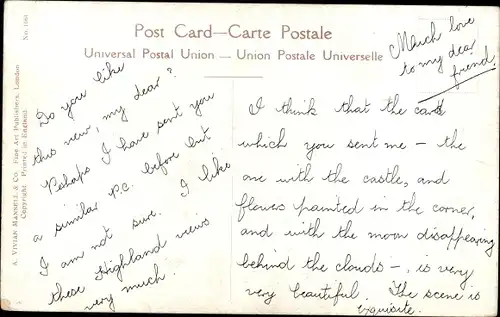 Post Card—Carte Postale
Universal Postal Union — Union Postale Universelle
No. 1083
A. VIVIAN MANSELL & CO. Fine Art Publishers, London
Copyright. Printed in England.
Do you like
this new, my dear?
Perhaps I have sent you
a similar P.C. before but
I am not sure. I like
these Highland views
very much.
Much love
to my dear
friend.
I think that the card
which you sent me – the
one with the castle, and
flowers painted in the corner,
and with the moon disappearing
behind the clouds –, is very
very beautiful. The scene is
exquisite.